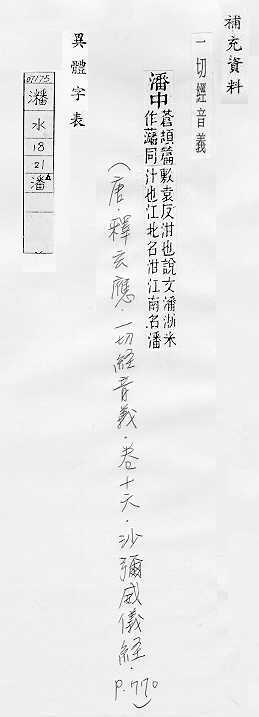 補充資料
一切經音義
潘中 蒼頡篇敷袁反泔也說文潘淅米
作藩同汁也江北名泔江南名潘
(唐.釋玄應.一切經音義.卷十六.沙彌威儀經.P.770)
異體字表
07175
水
18
21
潘